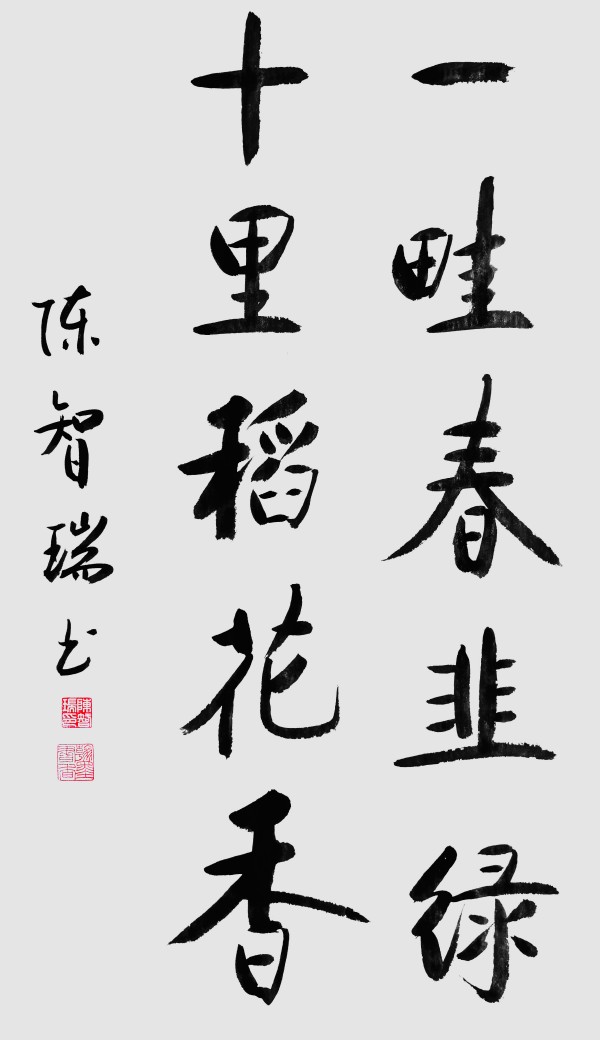 一畦春韭绿
十里稻花香
陈智瑞书
陳智瑞印